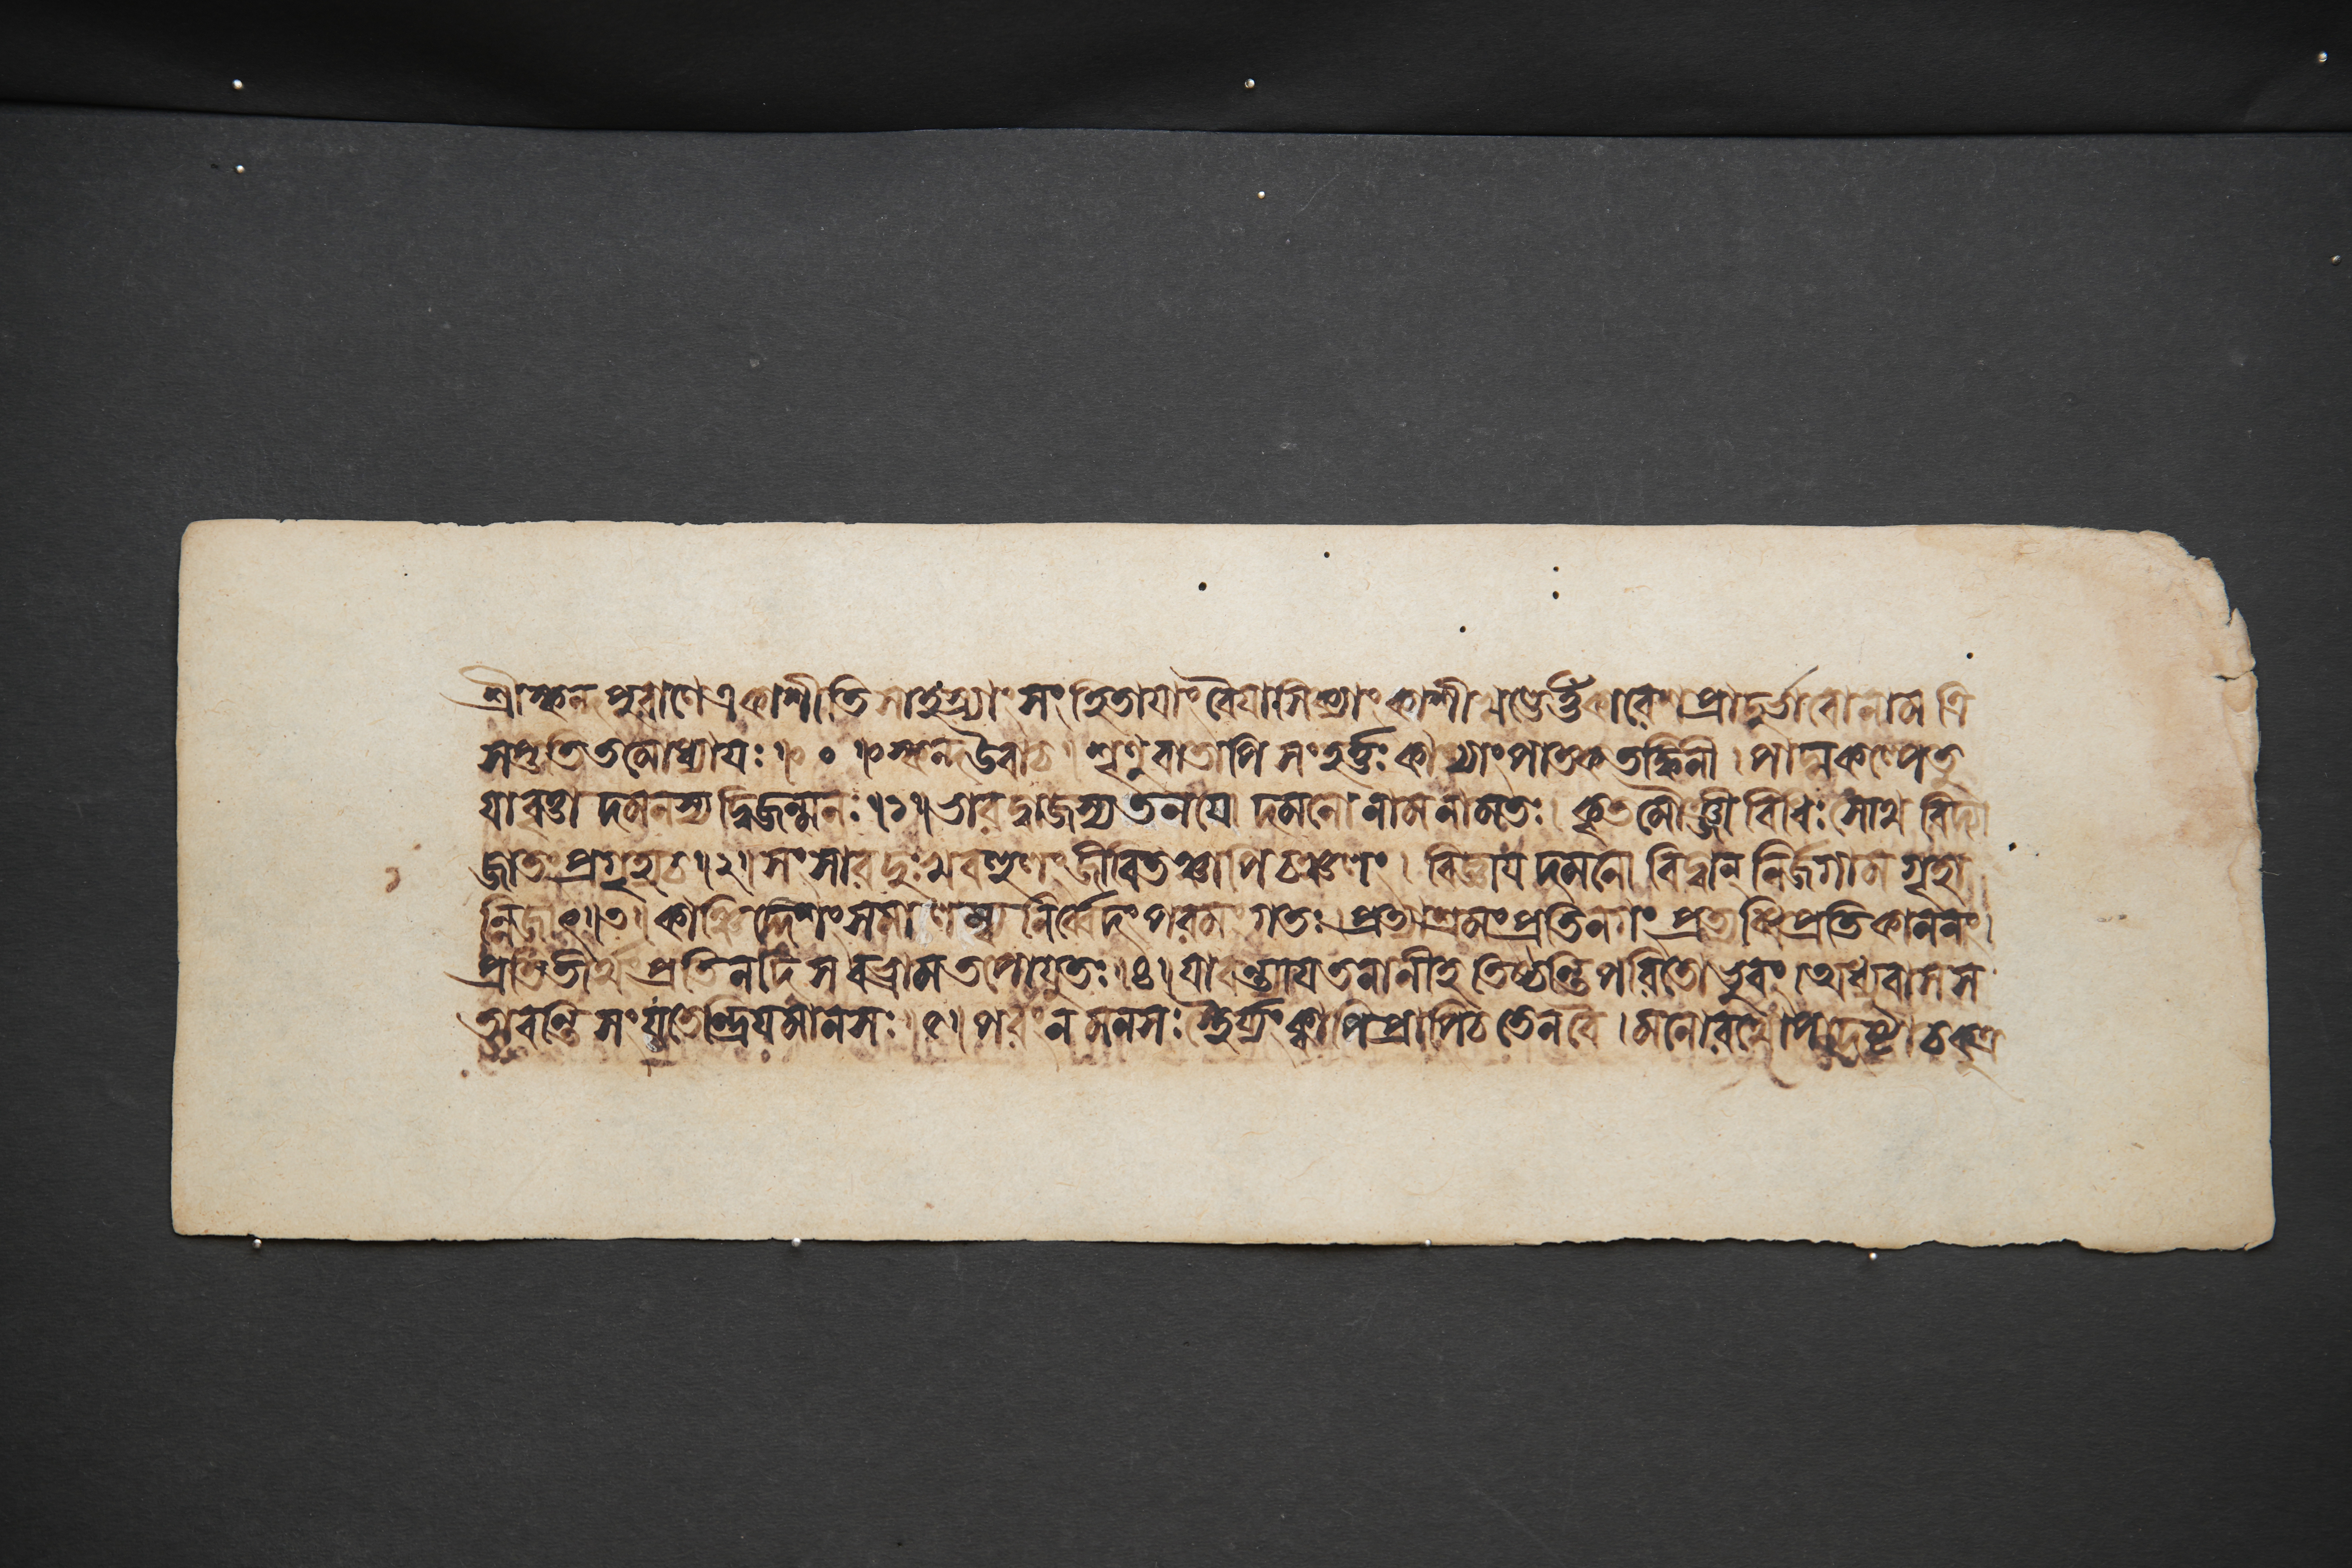 শ্রীস্কন্দপুরাণে একাশীতিসাহস্র্যাং সংহিতাযাং বৈযাসিক্যাং কাশীখণ্ডে র্ত্তিকারেশপ্রাদুর্ভাবো নাম ত্রি
সপ্ততিতমোধ্যাযঃ ৷৷ ০ ৷৷ স্কন্দ উবাচ ৷ শৃণু বাতাপিসংহর্ত্তুঃ কাশ্যাং পাতকতর্ক্কিনী ৷ পাদ্মকল্পে তু
যা বৃত্তা দমনস্য দ্বিজন্মনঃ ৷৷ ১ ৷৷ ভারদ্বাজস্য তনযো দমনো নাম নামতঃ ৷ কৃতমৌঞ্জীবিধিঃ সোথ বিদ্যা
জাতং প্রগৃহ্য চ ৷৷ ২ ৷৷ সংসারদুঃখবহুলং জীবিতঞ্চাপি চঞ্চলং ৷ বিজ্ঞায দমনো বিদ্বান্ নির্জগাম গৃহা
ন্নিজাৎ ৷৷ ৩ ৷৷ কাঞ্চিদ্দিশং সমালম্ব্য নির্ব্বেদং পরমং গতঃ ৷ প্রত্যাশ্রমং প্রতিনগং প্রত্যব্ধি প্রতিকাননং ৷
প্রতিতীর্থং প্রতিনদি স বভ্রাম তপোযুতঃ ৷৷ ৪ ৷৷ যাবন্ত্যাযতনানীহ তিষ্ঠন্তি পরিতো ভুবং ৷ অধ্যুবাস স
তাবন্তি সংযতেন্দ্রিযমানসঃ ৷৷ ৫ ৷৷ পরং ন মনসঃ স্থৈর্য্যং ক্বাপি প্রাপি চ তেন বৈ ৷ মনোরথোপদেষ্টা চ কুত্র